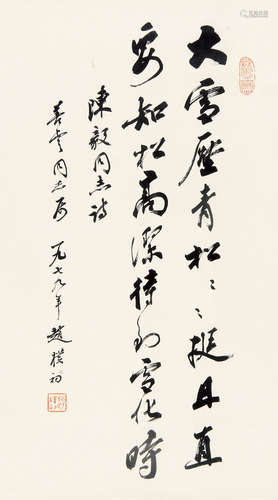 大雪壓青松〻〻挺且直
要知松高潔待到雪化時
陳毅同志詩
善書同志屬 一九七九年 趙樸初